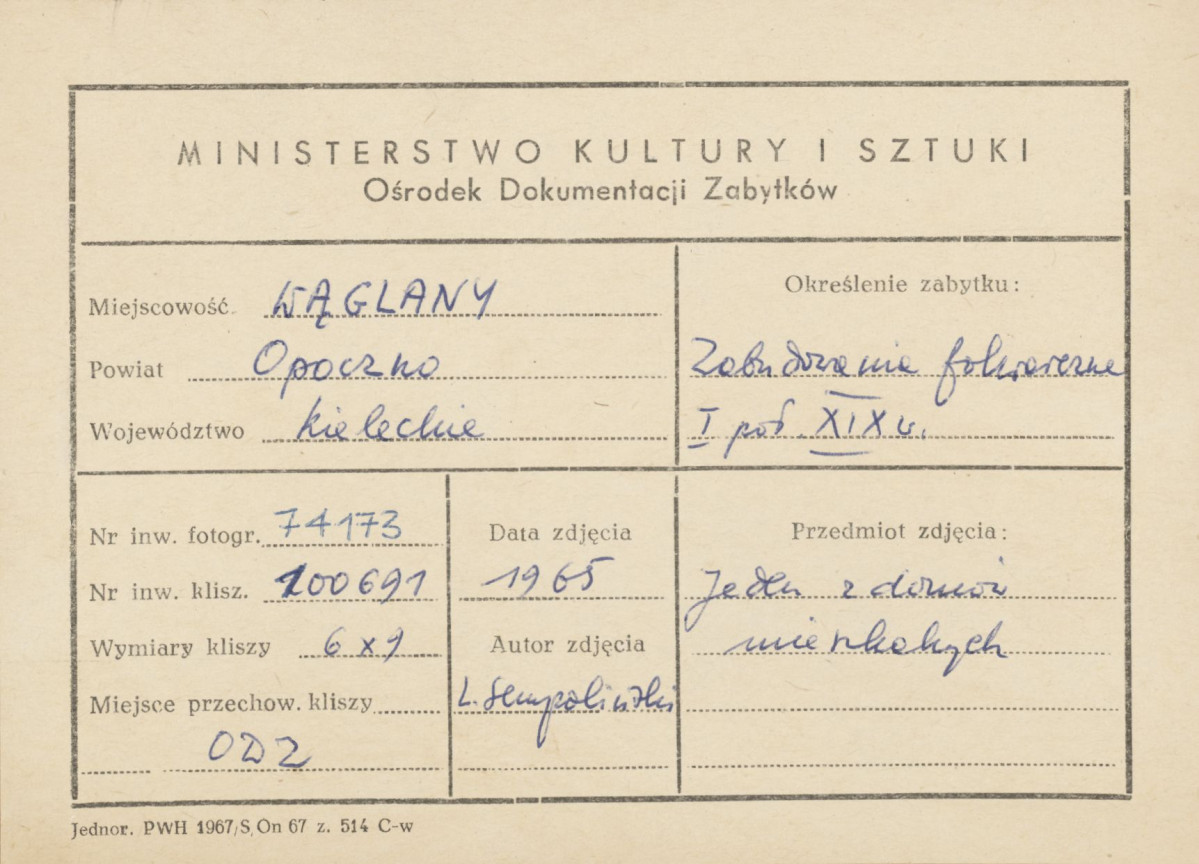 MINISTERSTWO KULTURY I SZTUKI
Ośrodek Dokumentacji Zabytków
Miejscowość WĄGLANY
Powiat Opoczno
Województwo kieleckie
Określenie zabytku:
Zabudowania folwarczne
I poł. XIX w.
Nr inw. fotogr. 74173
Nr inw. klisz. 100691
Wymiary kliszy 6x9
Miejsce przechow. kliszy
ODZ
Data zdjęcia
1965
Autor zdjęcia
L. Sempoliński
Przedmiot zdjęcia:
Jeden z domów
mieszkalnych
Jednor. PWH 1967/S, On 67 z. 514 C-w